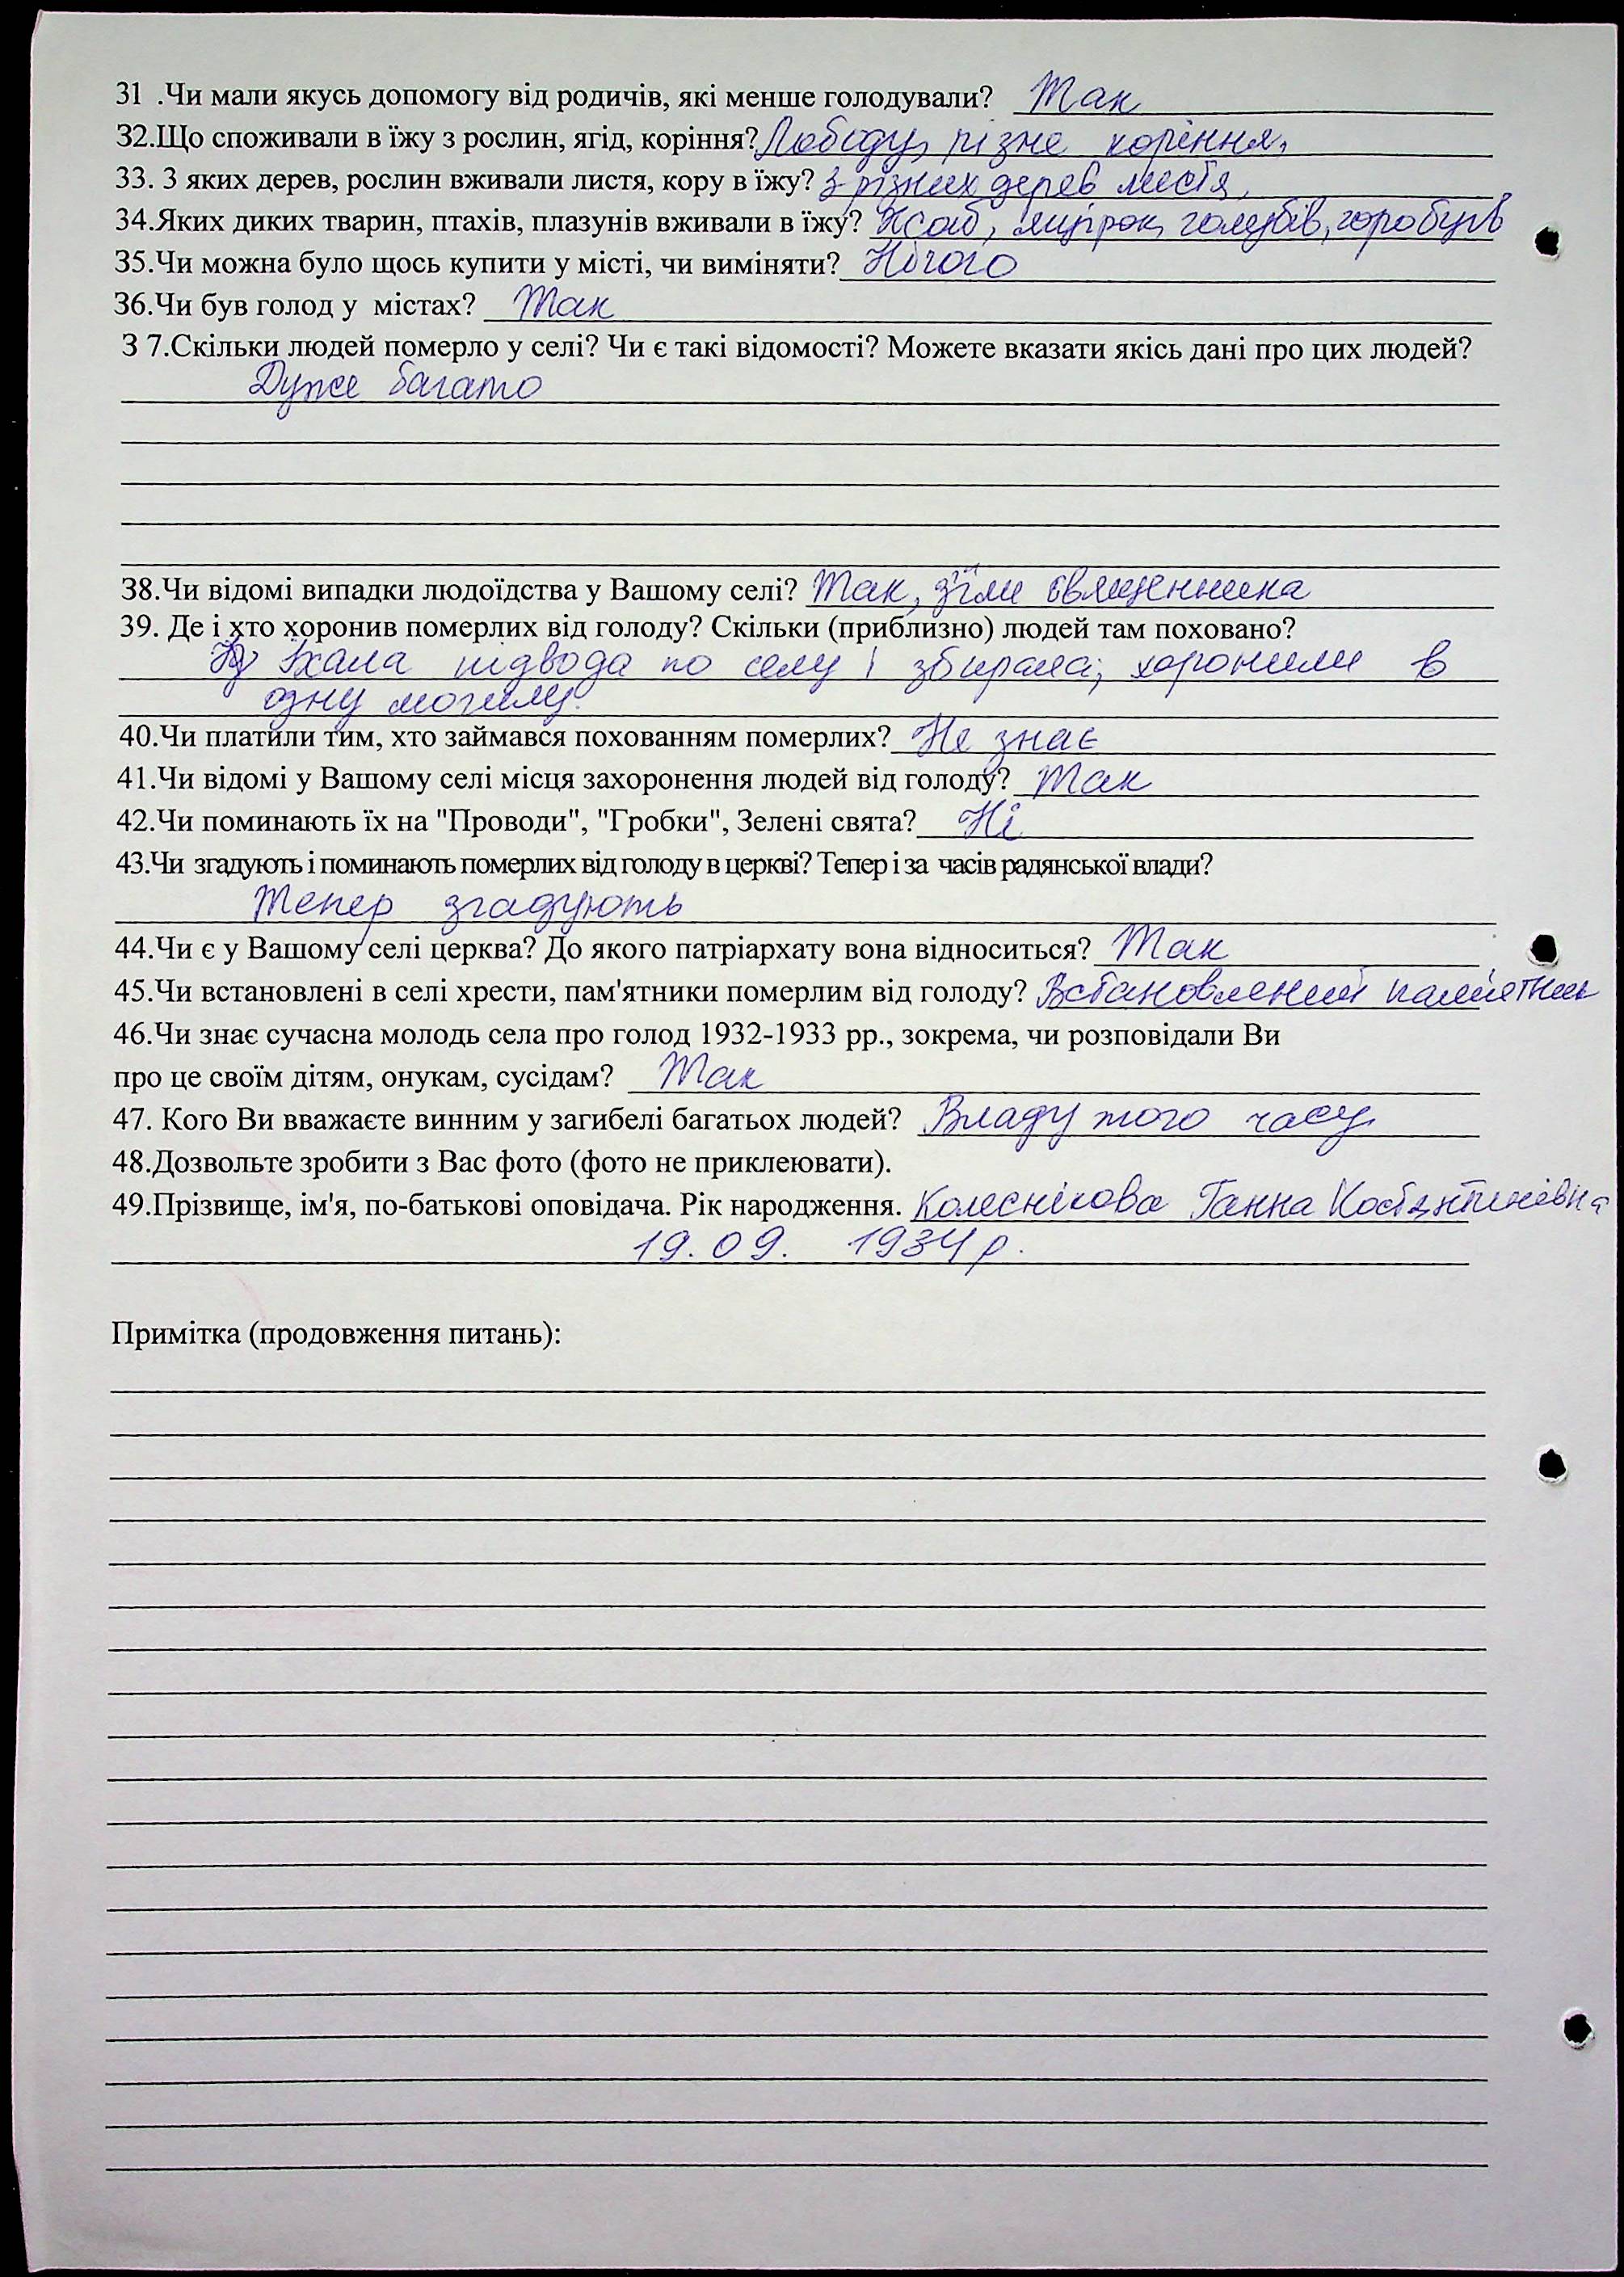 31 .Чи мали якусь допомогу від родичів, які менше голодували? Так
32.Що споживали в їжу з рослин, ягід, коріння? Лободу, різне коріння,
33. З яких дерев, рослин вживали листя, кору в їжу? З різних дерев листя,
34.Яких диких тварин, птахів, плазунів вживали в їжу? Їжаків, ящірок, голубів, горобців
35.Чи можна було щось купити у місті, чи виміняти? Нічого
36.Чи був голод у містах? Так
З 7.Скільки людей померло у селі? Чи є такі відомості? Можете вказати якісь дані про цих людей?
Дуже багато
38.Чи відомі випадки людоїдства у Вашому селі? Так, з'їли священника
39. Де і хто хоронив померлих від голоду? Скільки (приблизно) людей там поховано?
Їхала підвода по селу і збирала; хоронили в
одну могилу.
40.Чи платили тим, хто займався похованням померлих? Не знає
41.Чи відомі у Вашому селі місця захоронення людей від голоду? Так
42.Чи поминають їх на "Проводи", "Гробки", Зелені свята? Ні
43.Чи згадують і поминають померлих від голоду в церкві? Тепер і за часів радянської влади?
Тепер згадують
44.Чи є у Вашому селі церква? До якого патріархату вона відноситься? Так
45.Чи встановлені в селі хрести, пам'ятники померлим від голоду? Встановлений пам'ятник
46.Чи знає сучасна молодь села про голод 1932-1933 рр., зокрема, чи розповідали Ви
про це своїм дітям, онукам, сусідам? Так
47. Кого Ви вважаєте винним у загибелі багатьох людей? Владу того часу
48.Дозвольте зробити з Вас фото (фото не приклеювати).
49.Прізвище, ім'я, по-батькові оповідача. Рік народження. Колеснікова Ганна Костянтинівна
19.09. 1934 р.
Примітка (продовження питань):